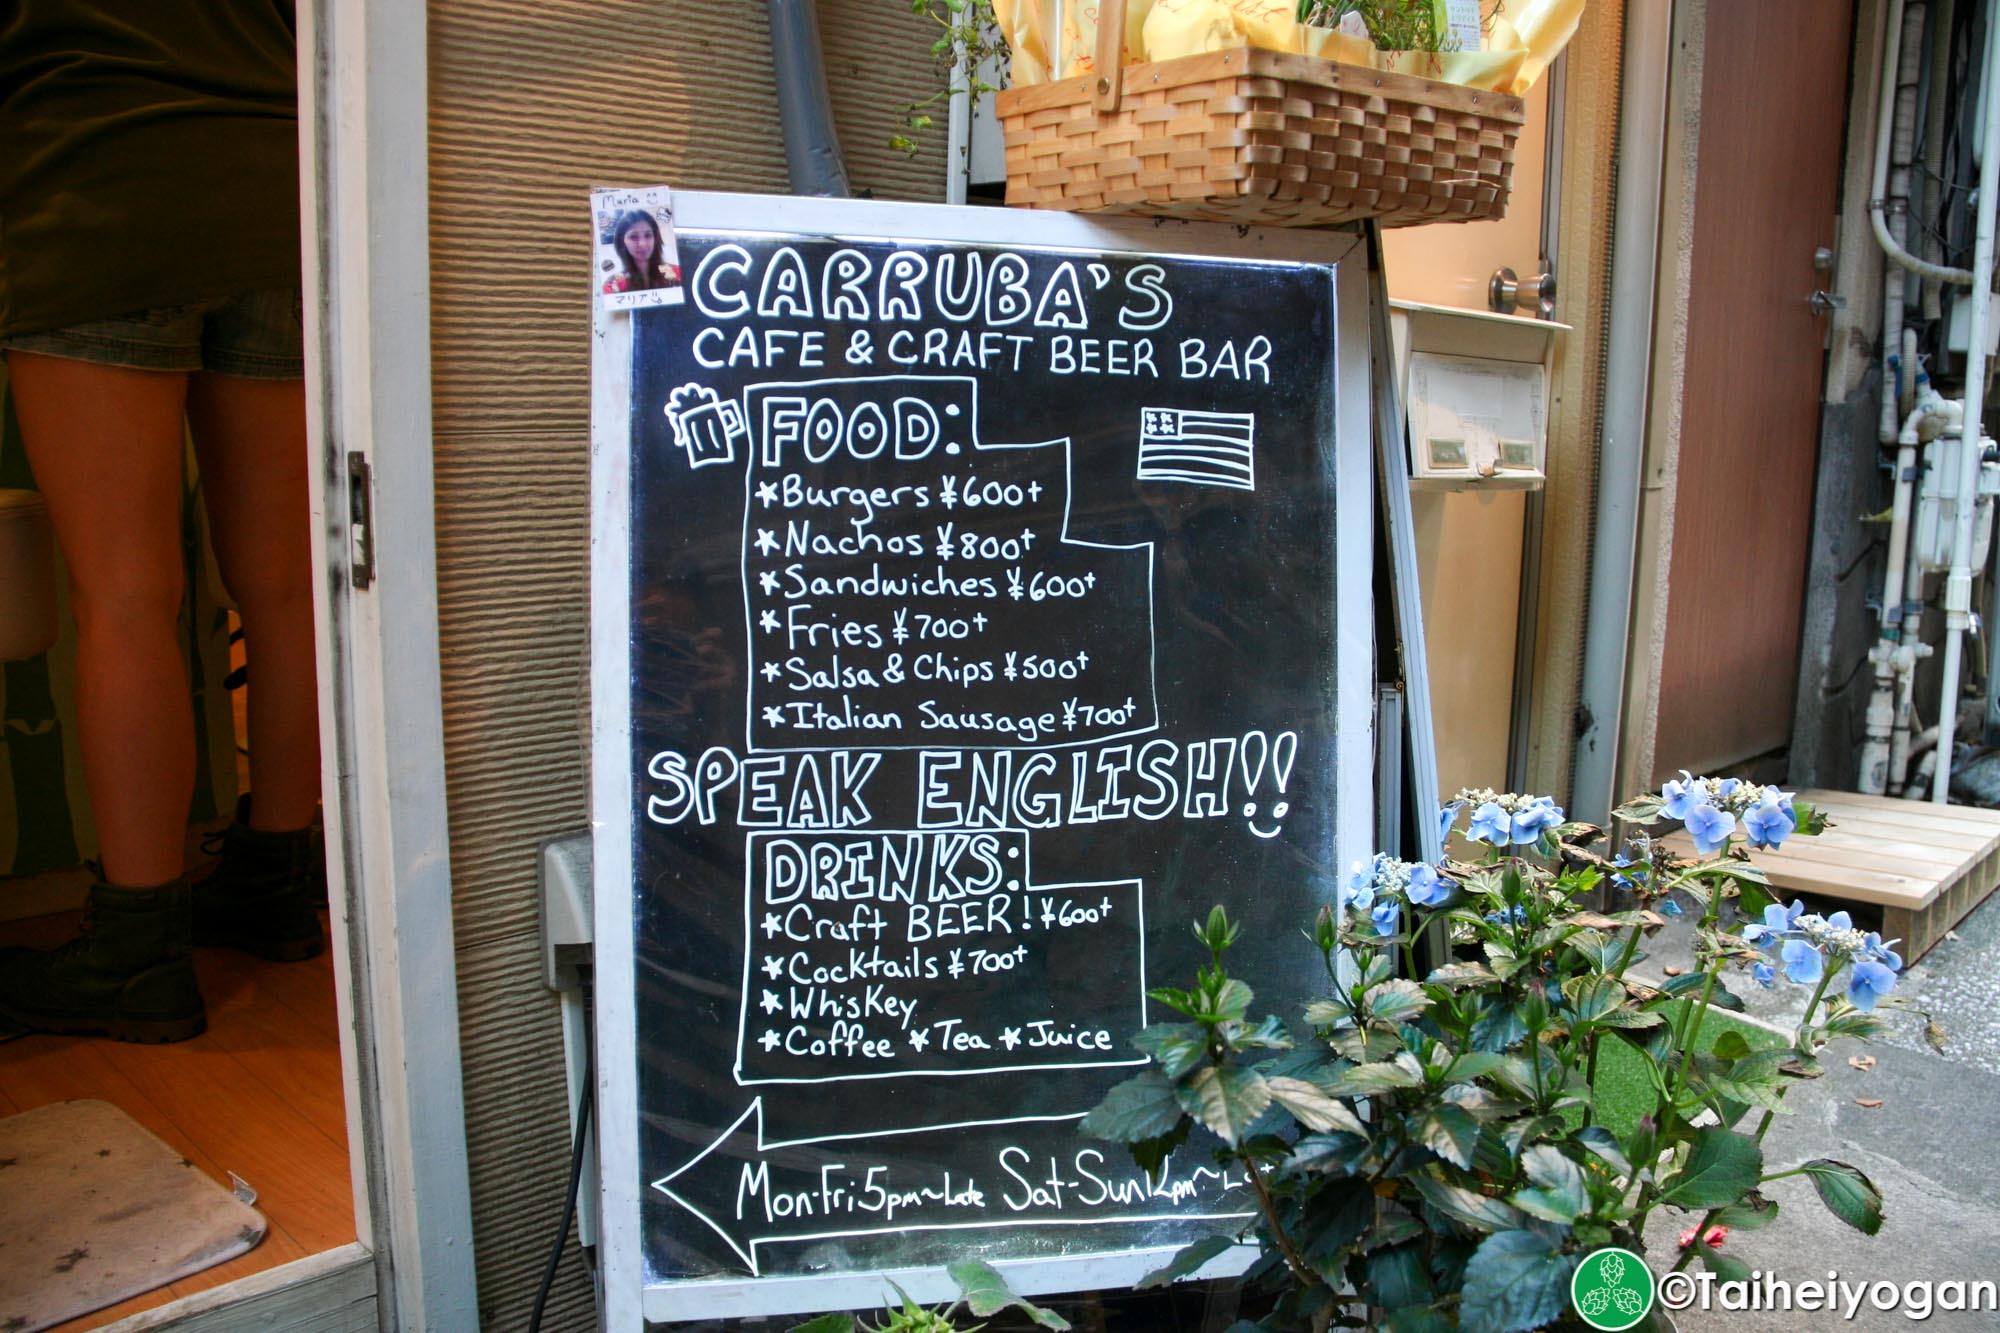 Maria
マリア
CARRUBA'S
CAFE & CRAFT BEER BAR
FOOD:
*Burgers ¥600+
*Nachos ¥800+
*Sandwiches ¥600+
*Fries ¥700+
*Salsa & Chips ¥500+
*Italian Sausage ¥700+
SPEAK ENGLISH!!
DRINKS:
*Craft BEER! ¥600+
*Cocktails ¥700+
*Whiskey
*Coffee *Tea *Juice
Mon-Fri 5pm~Late Sat-Sun 12pm~
©Taiheiyogan